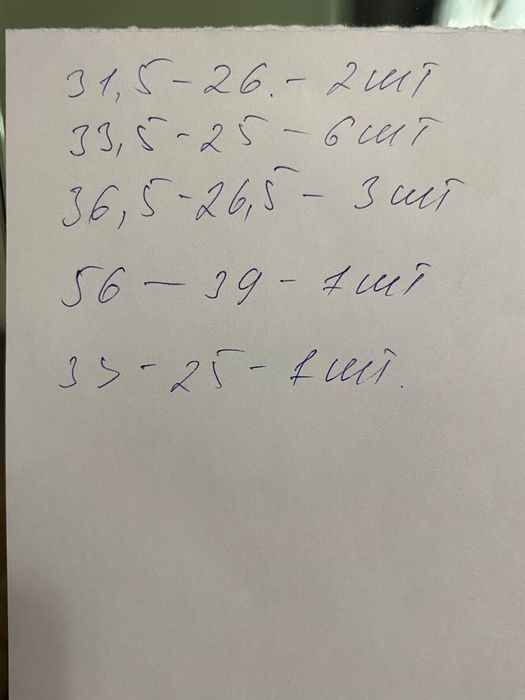 31,5 - 26. - 2 шт
33,5 - 25 - 6 шт
36,5 - 26,5 - 3 шт
56 - 39 - 1 шт
33 - 25 - 1 шт.